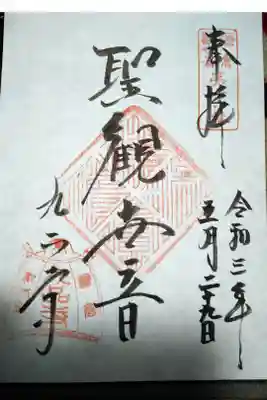 奉拝
令和三年
五月二十九日
聖観世音